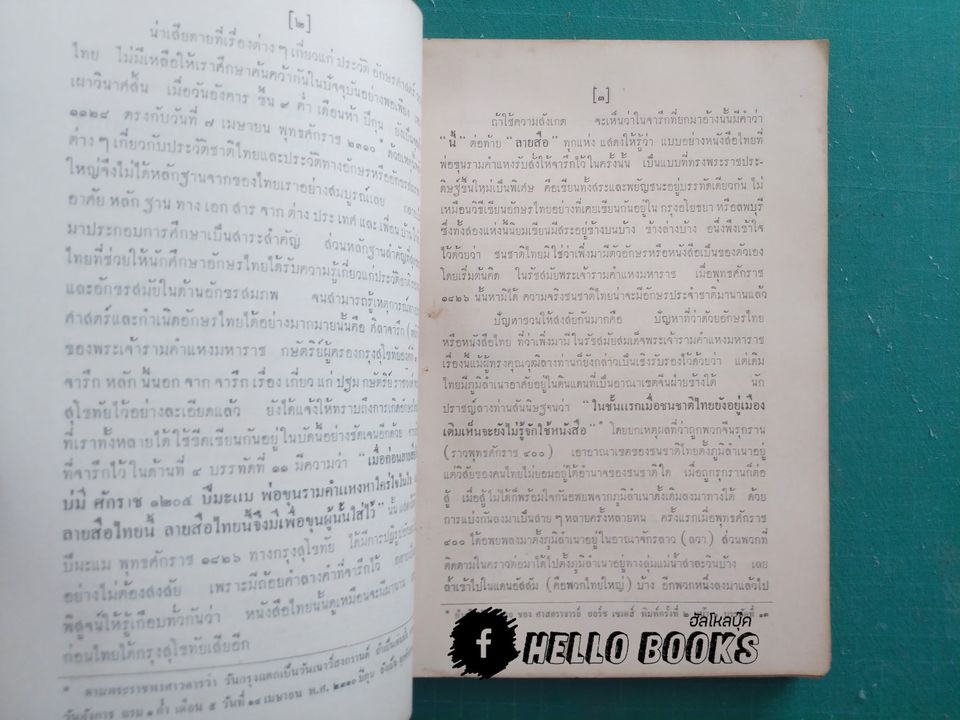 [๒]
น่าเสียดายที่เรื่องต่าง ๆ เกี่ยวแก่ ประวัติ อักษรศาสตร์
ไทย ไม่มีเหลือให้เราศึกษาค้นคว้ากันในปัจจุบันอย่างพอเพียง
เผาวินาศสิ้น เมื่อวันอังคาร ขึ้น ๙ ค่ำ เดือนห้า ปีกุน
๑๑๒๘ ตรงกับวันที่ ๗ เมษายน พุทธศักราช ๒๓๑๐
ต่าง ๆ เกี่ยวกับประวัติชาติไทยและประวัติทางอักษรหรืออักษร
ใหญ่จึงไม่ได้หลักฐานจากของไทยเราอย่างสมบูรณ์เลย
อาศัย หลัก ฐาน ทาง เอก สาร จาก ต่าง ประ เทศ และ เพื่อน บ้าน
มาประกอบการศึกษาเป็นสาระสำคัญ ส่วนหลักฐานสำคัญ
ไทยที่ช่วยให้นักศึกษาอักษรไทยได้รับความรู้เกี่ยวแก่ประวัติ
และอักขรสมัยในด้านอักขรสมภพ จนสามารถรู้เหตุการณ์
ศาสตร์และกำเนิดอักษรไทยได้อย่างมากมายนั้นคือ ศิลาจารึก
ของพระเจ้ารามคำแหงมหาราช กษัตริย์ผู้ครองกรุงสุโขทัย
จารึก หลัก นี้นอก จาก จารึก เรื่อง เกี่ยว แก่ ปฐม กษัตริย์
สุโขทัยไว้อย่างละเอียดแล้ว ยังได้แจ้งให้ทราบถึงการเกิดอักษร
ที่เราทั้งหลายได้ใช้ขีดเขียนกันอยู่ในบัดนี้อย่างชัดเจนอีกด้วย
ที่จารึกไว้ในด้านที่ ๔ บรรทัดที่ ๑๑ มีความว่า "เมื่อก่อนลายสือ
บ่มี ศักราช ๑๒๐๕ ปีมะแม พ่อขุนรามคำแหงหาใคร่ใจในใจ
ลายสือไทยนี้ ลายสือไทยนี้จึงมีเพื่อขุนผู้นั้นใส่ไว้"
ปีมะแม พุทธศักราช ๑๘๒๖ ทางกรุงสุโขทัย ได้มีการปฏิรูป
อย่างไม่ต้องสงสัย เพราะมีถ้อยคำลางคำที่จารึกไว้
พิสูจน์ให้รู้เกือบทั่วกันว่า หนังสือไทยนั้นดูเหมือนจะมีมานาน
ก่อนไทยได้กรุงสุโขทัยเสียอีก
* ตามพระราชพงศาวดารว่า วันกรุงแตกเป็นวันเนาว์สงกรานต์
วันอังคาร แรม ๑ ค่ำ เดือน ๕ วันที่ ๑๔ เมษายน พ.ศ. ๒๓๑๐ ปีกุน
[๓]
ถ้าใช้ความสังเกต จะเห็นว่าในจารึกที่ยกมาอ้างนั้นมีคำว่า
"นี้" ต่อท้าย "ลายสือ" ทุกแห่ง แสดงให้รู้ว่า แบบอย่างหนังสือไทยที่
พ่อขุนรามคำแหงรับสั่งให้จารึกไว้ ในครั้งนั้น เป็นแบบที่ทรงพระราชประ-
ดิษฐ์ขึ้นใหม่เป็นพิเศษ คือเขียนทั้งสระและพยัญชนะอยู่บรรทัดเดียวกัน ไม่
เหมือนวิธีเขียนอักษรไทยอย่างที่เคยเขียนกันอยู่ใน กรุงอโยธยา หรือลพบุรี
ซึ่งทั้งสองแห่งนั้นนิยมเขียนมีสระอยู่ข้างบนบ้าง ข้างล่างบ้าง อนึ่งพึงเข้าใจ
ไว้ด้วยว่า ชนชาติไทยมิใช่ว่าเพิ่งมามีตัวอักษรหรือหนังสือเป็นของตัวเอง
โดยเริ่มต้นคิด ในรัชสมัยพระเจ้ารามคำแหงมหาราช เมื่อพุทธศักราช
๑๘๒๖ นั้นหามิได้ ความจริงชนชาติไทยน่าจะมีอักษรประจำชาติมานานแล้ว
ปัญหาชวนให้สงสัยกันมากคือ ปัญหาที่ว่าด้วยอักษรไทย
หรือหนังสือไทย ที่ว่าเพิ่งมามี ในรัชสมัยสมเด็จพระเจ้ารามคำแหงมหาราช
เรื่องนี้แม้ผู้ทรงคุณวุฒิลางท่านก็ยังกล่าวเป็นเชิงรับรองไว้ด้วยว่า แต่เดิม
ไทยมีภูมิลำเนาอาศัยอยู่ในดินแดนที่เป็นอาณาเขตจีนฝ่ายข้างใต้ นัก
ปราชญ์ลางท่านสันนิษฐานว่า "ในชั้นแรกเมื่อชนชาติไทยยังอยู่เมือง
เดิมเห็นจะยังไม่รู้จักใช้หนังสือ"* โดยยกเหตุผลที่ว่าถูกพวกจีนรุกราน
(ราวพุทธศักราช ๔๐๐) เอาอาณาเขตของชนชาติไทยซึ่งตั้งภูมิลำเนาอยู่
แต่วิสัยของคนไทยไม่ยอมอยู่ใต้อำนาจของชนชาติใด เมื่อถูกรุกรานก็ต่อ
สู้ เมื่อสู้ไม่ได้ก็พร้อมใจกันอพยพจากภูมิลำเนาดั้งเดิมลงมาทางใต้ ด้วย
การแบ่งกันลงมาเป็นสาย ๆ หลายครั้งหลายหน ครั้งแรกเมื่อพุทธศักราช
๔๐๐ ได้อพยพลงมาตั้งภูมิลำเนาอยู่ในอาณาจักรลาว (ลวา) ส่วนพวกที่
ติดตามในคราวต่อมาได้ไปตั้งภูมิลำเนาอยู่ทางลุ่มแม่น้ำสาละวินบ้าง เลย
ล้ำเข้าไปในแดนอัสสัม (คือพวกไทยใหญ่) บ้าง อีกพวกหนึ่งลงมาแล้วไป
ของ ศาสตราจารย์ ยอร์ช เซเดส์ พิมพ์ครั้งที่ ๒
ฮัลโหลบุ๊ค
f HELLO BOOKS